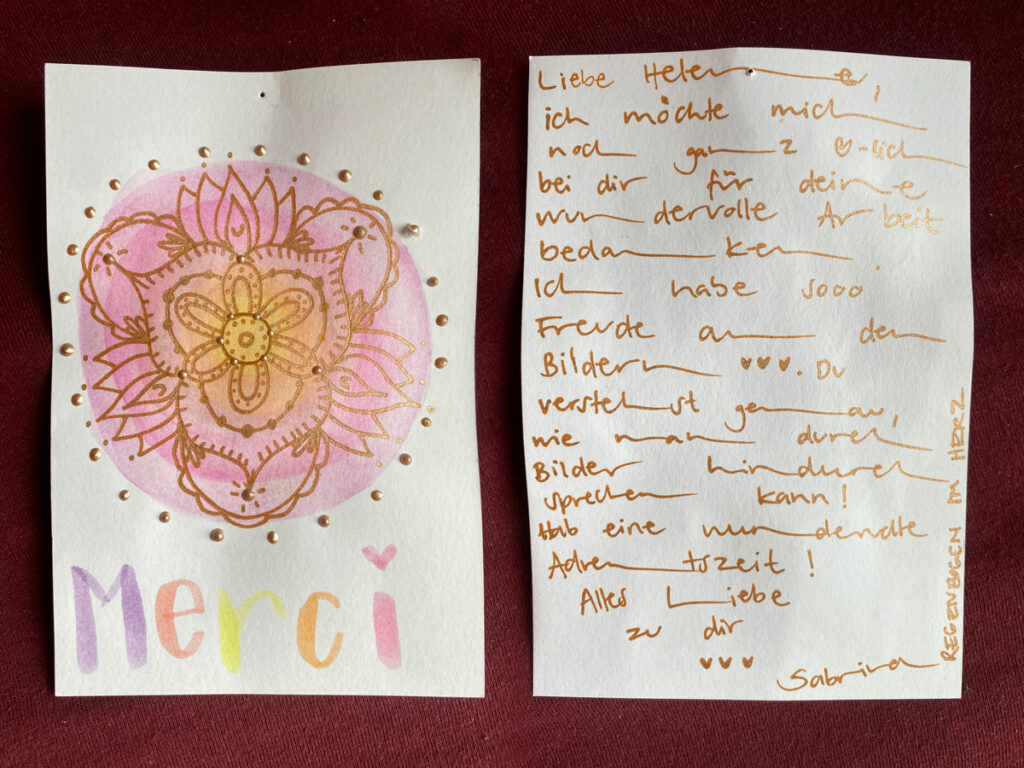 Merci
Liebe Helene,
ich möchte mich
noch ganz ♥-lich
bei dir für deine
wundervolle Arbeit
bedanken
Ich habe sooo
Freude an den
Bildern ♥♥♥. Du
verstehst genau,
wie man durch
Bilder hindurch
sprechen kann!
Hab eine
Adventszeit!
Alles Liebe
zu dir
♥♥♥
Sabrina
REGENBOGEN IM HERZ